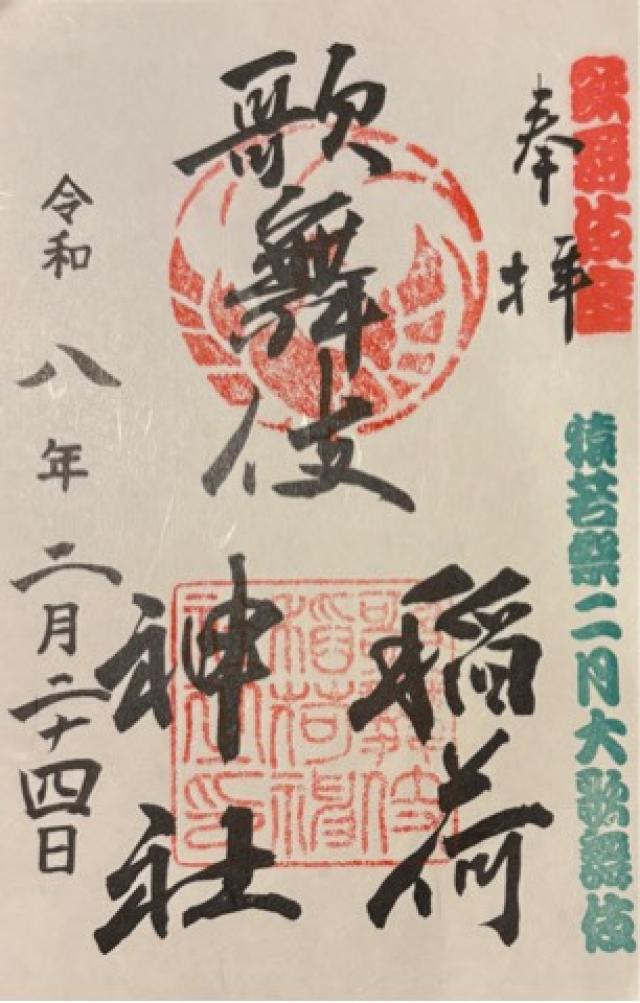 歌舞伎座
奉拝
猿若祭二月大歌舞伎
歌舞伎
稲荷
神社
歌舞伎
稲荷神
社印
令和八年二月二十四日